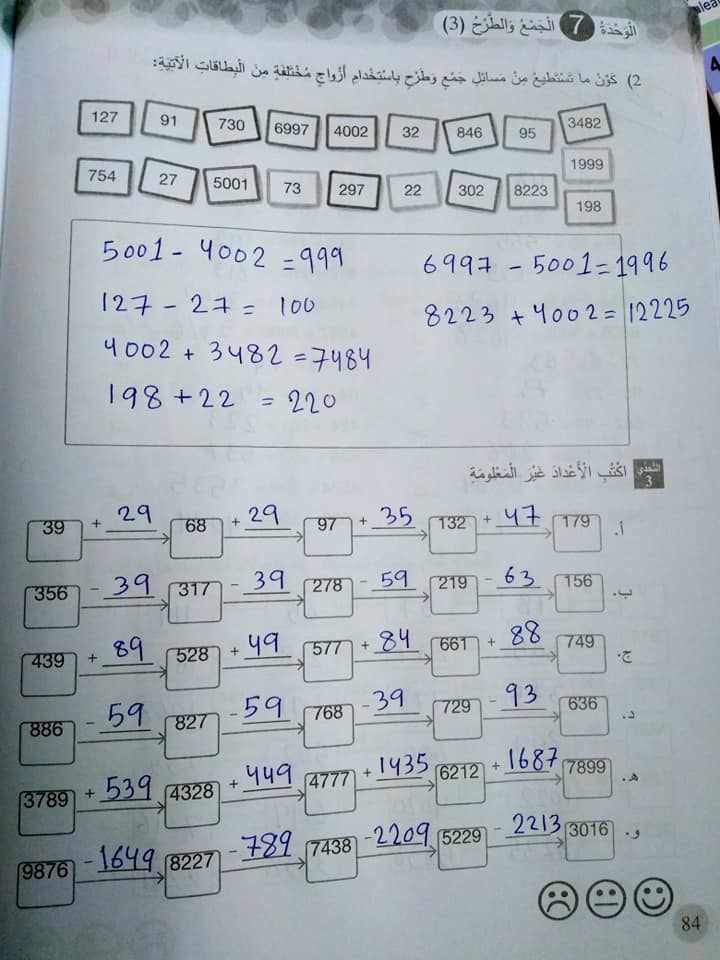 الْوَحْدَةُ 7 الْجَمْعُ وَالطَّرْحُ (3)
2) كَوِّنْ ما تَسْتَطيعُ مِنْ مَسائِلِ جَمْعٍ وَطَرْحٍ بِاسْتِخْدامِ أَزْواجٍ مُخْتَلِفَةٍ مِنَ الْبِطاقاتِ الْآتِيَةِ:
127 91 730 6997 4002 32 846 95 3482
1999
754 27 5001 73 297 22 302 8223 198
5001 - 4002 = 999 6997 - 5001 = 1996
127 - 27 = 100 8223 + 4002 = 12225
4002 + 3482 = 7484
198 + 22 = 220
التَّحَدّي 3 اكْتُبِ الْأَعْدادَ غَيْرَ الْمَعْلومَةِ
39 + 29 68 + 29 97 + 35 132 + 47 179 أ.
356 - 39 317 - 39 278 - 59 219 - 63 156 ب.
439 + 89 528 + 49 577 + 84 661 + 88 749 ج.
886 - 59 827 - 59 768 - 39 729 - 93 636 د.
3789 + 539 4328 + 449 4777 + 1435 6212 + 1687 7899 هـ.
9876 - 1649 8227 - 789 7438 - 2209 5229 - 2213 3016 و.
84